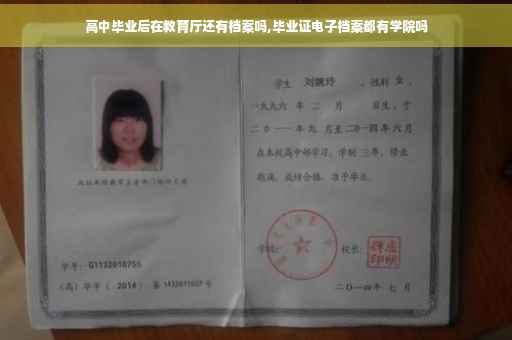 高中毕业后在教育厅还有档案吗,毕业证电子档案都有学院吗
学生 刘婉玲 ，性别 女 ，
一九九六 年 二 月 日生，于
二〇一一 年 九 月至 二〇一四 年 六 月
在本校高中部学习，学制 三年，修业
期满，成绩合格，准予毕业。
学号： G1132010755
（高）毕字（ 2014 ）第 1432011027 号
校长：
二〇一四年 七 月